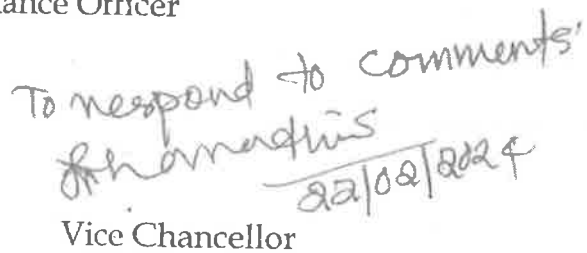 ance Officer
To respond to comments
22/02/2024
Vice Chancellor